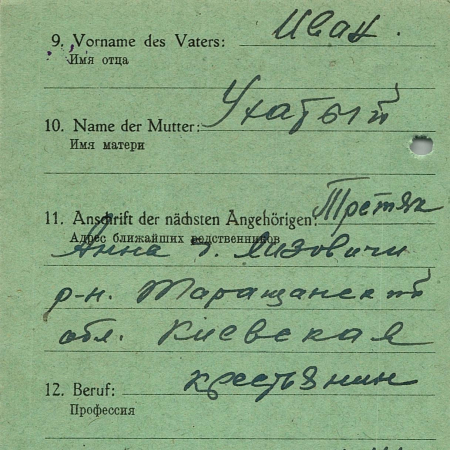 9. Vorname des Vaters: Иван.
Имя отца
10. Name der Mutter: Ухатый
Имя матери
11. Anschrift der nächsten Angehörigen: Третяк
Адрес ближайших родственников
Анна с. Лизовичи
р-н. Таращанский
обл. Киевская
12. Beruf: крестьянин
Профессия